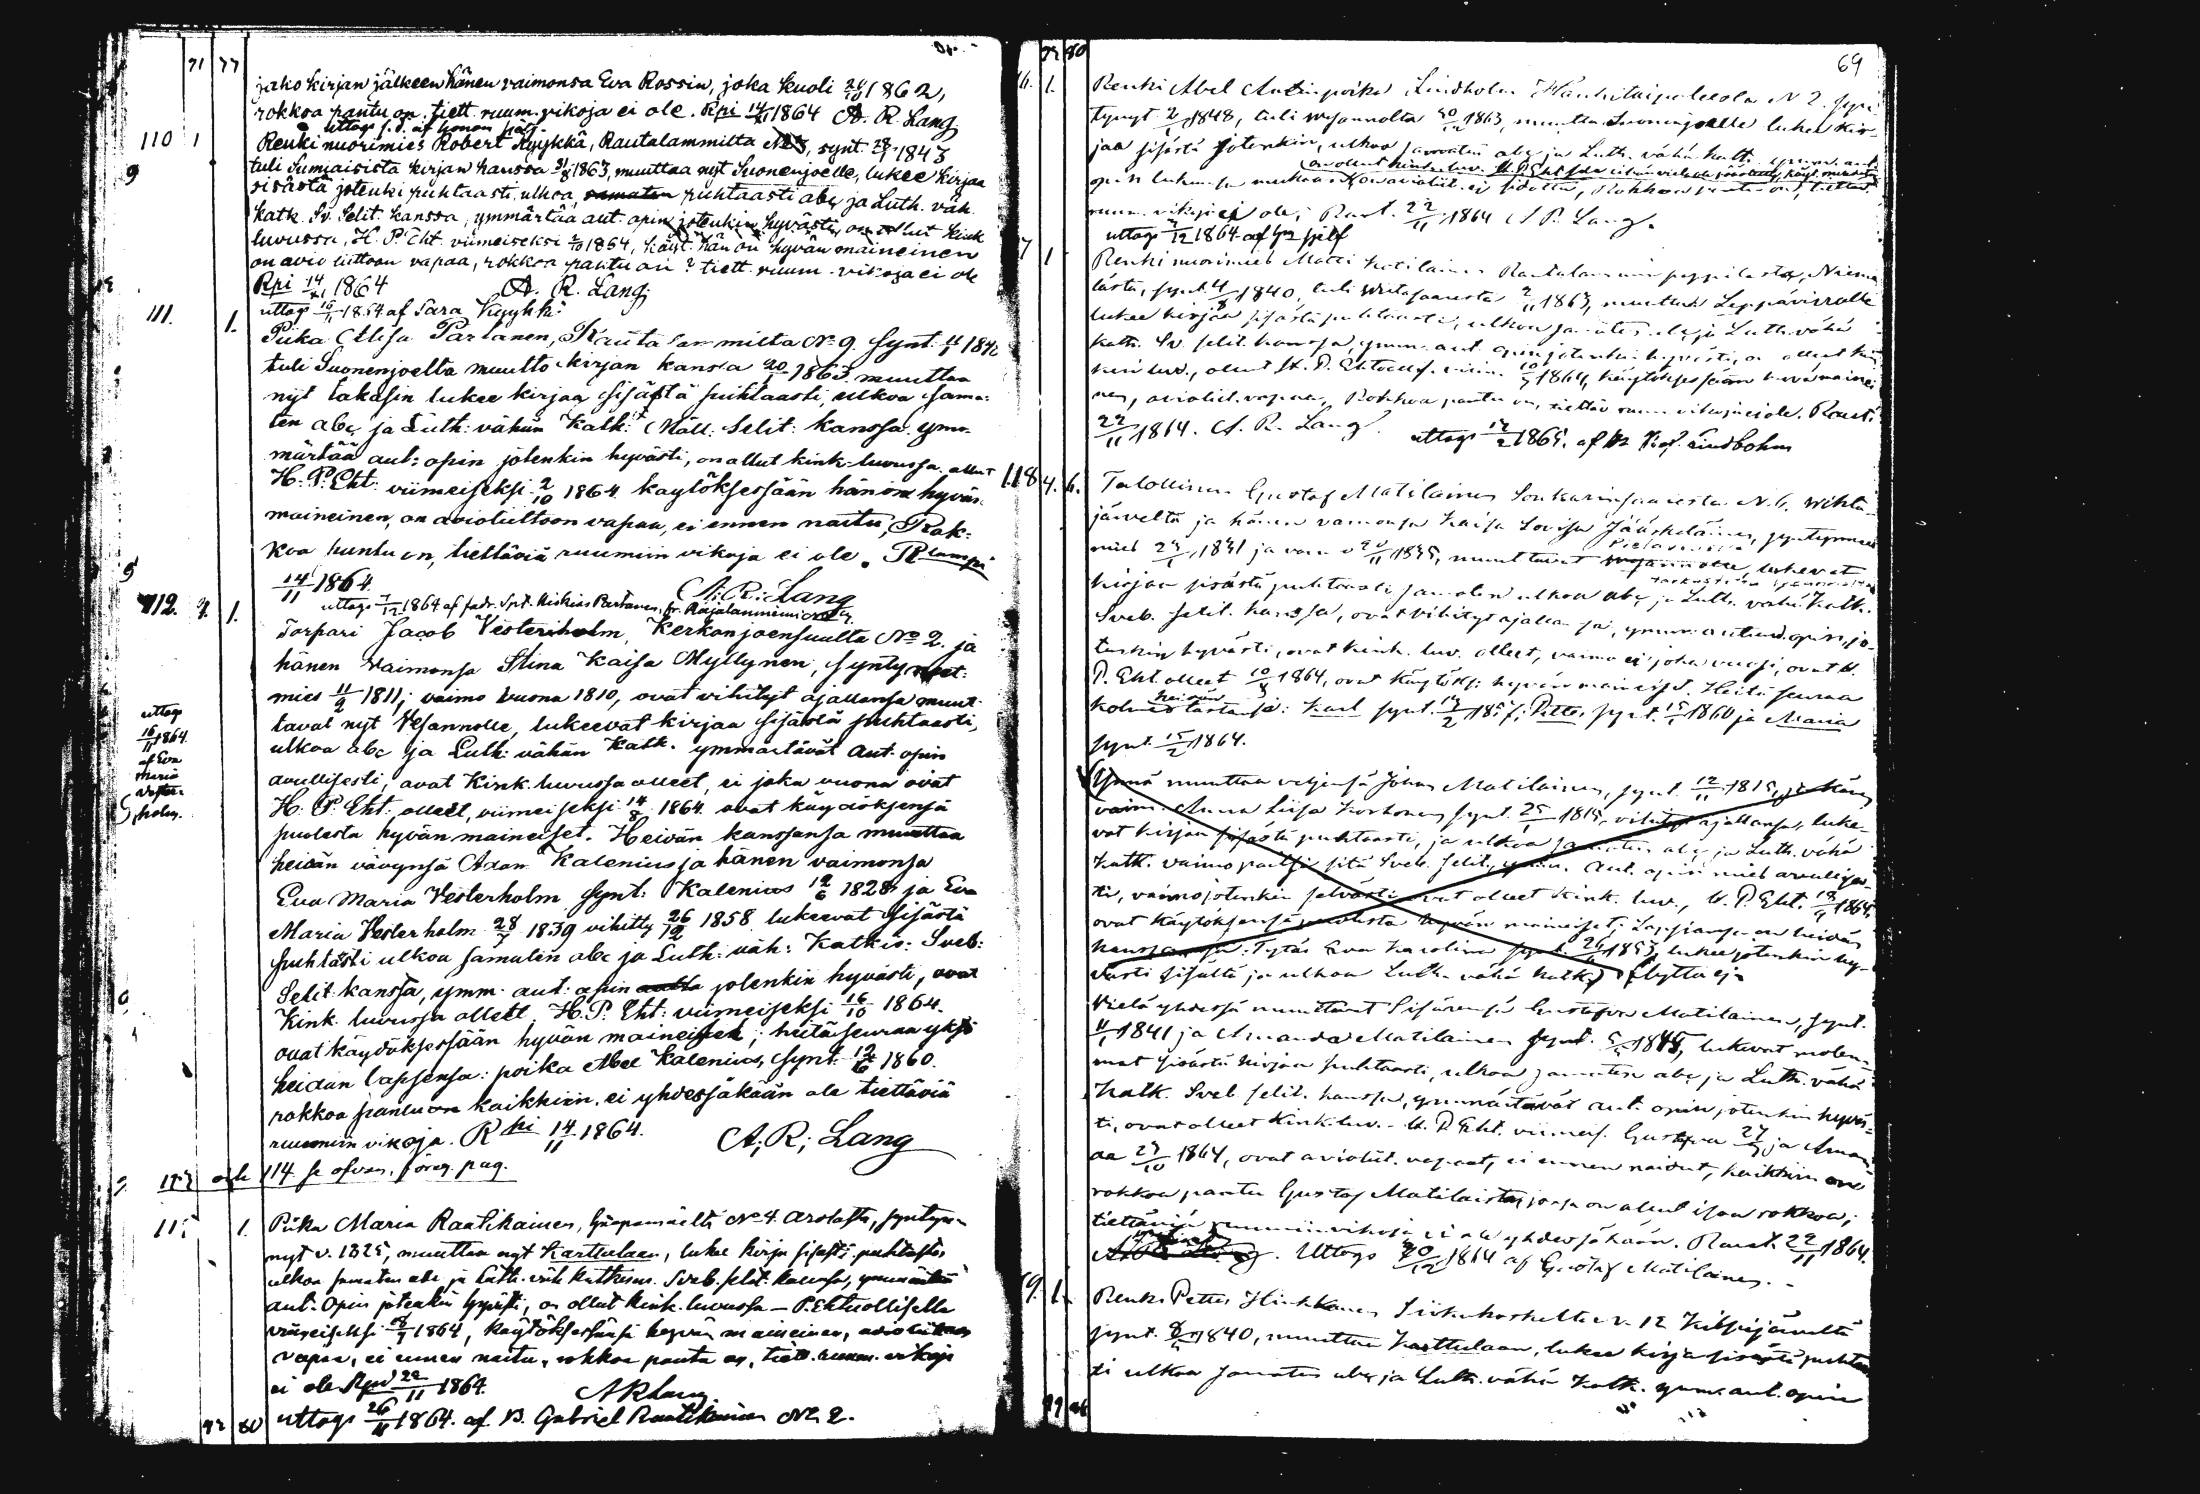 71 77
jako kirjan jälkeen hänen vaimonsa Eva Rossin, joka kuoli 1862,
rokkoa pantu on, tiett. ruum. vikoja ei ole. Rpi 14/11 1864 A. R. Lang
uttogs s. d. af honom sjelf
110 1 Renki nuorimies Robert Kyykkä, Rautalammilta synt. 1843
tuli Sumiaisista kirjan kanssa 1863, muuttaa nyt Suonenjoelle, lukee kirjaa
sisästä jotenki puhtaasti, ulkoa, samaten puhtaasti abc ja Luth. väh.
katk. Sv. Selit. kanssa, ymmärtää aut. opin jotenkin hyvästi, on ollut kink
luvussa, H. P. Eht. viimeiseksi 2/10 1864, käyt. hän on hyvän maineinen
on avio liittoon vapaa, rokkoa pantu on? tiett. ruum. vikoja ei ole
Rpi 14/11 1864 A. R. Lang.
uttogs 16/11 1864 af Sara Kyykkä
111. 1. Piika Elisa Partanen, Rautalammilta No 9. synt.
tuli Suonenjoelta muutto kirjan kanssa 1863. muuttaa
nyt takasin lukee kirjaa sisästä puhtaasti, ulkoa sama-
ten abc ja Luth: vähän Katk: Mall: Selit: kanssa ym-
märtää aut: opin jotenkin hyvästi, on ollut kink-luvussa. ollut
H. P. Eht. viimeiseksi 2/10 1864 kaytöksessään hän on hyvän
maineinen, on avioliittoon vapaa, ei ennen naitu, Rok-
koa pantu on, tiettäviä ruumiin vikoja ei ole. Rlampi
14/11 1864. A: R: Lang
uttogs 7/12 1864 af fadr. Partanen, fr.
112. 4. 1. Torpari Jacob Vesterholm, Kerkonjoensuulta No 2. ja
hänen Vaimonsa Stina Kaisa Myllynen, syntyneet:
mies 11/2 1811; vaimo vuona 1810, ovat vihityt ajallansa muut-
tavat nyt Vesannolle, lukeevat kirjaa sisästä puhtaasti,
ulkoa abc ja Luth: vähän Katk. ymmärtävät aut. opin
avullisesti, ovat Kink. luvussa olleet, ei joka vuona ovat
H. P. Eht. olleet, viimeiseksi 14/8 1864. ovat käydöksensä
puolesta hyvän maineiset. Heidän kanssansa muuttaa
heidän vävynsä Adam Kalenius ja hänen vaimonsa
Eva Maria Vesterholm synt: Kalenius 12/6 1828 ja Eva
Maria Vesterholm 28/7 1839 vihitty 26/12 1858. lukeevat sisästä
puhtästi ulkoa samaten abc ja Luth: väh: Katkis: Sveb:
Selit kanssa, ymm. aut: opin jotenkin hyvästi, ovat
Kink. luvussa olleet, H. P. Eht: viimeiseksi 16/10 1864.
ovat käydöksessään hyvän maineiset; heitä seuraa yksi
heidän lapsensa: poika Abel Kalenius, synt: 12/6 1860.
rokkoa pantu on kaikkiin. ei yhdessäkään ole tiettäviä
ruumiin vikoja. Rpi 14/11 1864. A; R; Lang
uttogs
16/11 1864.
af Eva
Maria
Vester-
holm.
och 114 se ofvan, föreg. pag.
115 1. Piika Maria Raatikainen, No 4. syntyn-
nyt v. 1825, muuttaa nyt Karttulaan, lukee kirja sisästä puhtasti,
ulkoa samaten abc ja Luth. väh Katkism. Sveb. selit. kanssa, ymmärtää
aut. Opin jotenkin hyvästi, on ollut kink. luvussa – P. Ehtoollisella
viimeiseksi 1864, käytöksessänsä hyvän maineinen, avioliittoon
vapaa, ei ennen naitu, rokkoa pantu on, tiett. ruum. vikoja
ei ole Rpi 22/11 1864. A R Lang.
92 80 uttogs 26/11 1864. af B. Gabriel Raatikainen No 2.
69
79 80
1. Renki Abel Antinpoika Lindholm No 2. syn-
tynyt 1848, tuli wesannolta 1863, muuttaa Suonenjoelle lukee kir-
jaa sisästä jotenkin, ulkoa samaten abc ja Luth. vähä katk.
ruum. vikoja ei ole; Raut. 22/11 1864 A. R. Lang.
uttogs 12 1864 af hm sjelf
1 Renki nuorimies Matti Kotilainen
synt. 4 1840, tuli 1863, muuttaa Leppävirralle
lukee kirjaa sisästä puhtaasti, ulkoa samaten abc ja Luth. vähä
katk. Sv. selit. kanssa, ymm. aut. opin jotenkin hyvästi, on ollut kin-
kiri luv., ollut H. P. Ehtoolis. viim. 1864, käytöksessään hyvämainei-
nen, aviolüt. vapaa, Rokkoa pantu on, tiettäv. ruum. vikoja ei ole. Raut.
22/11 1864. A. R. Lang. uttogs 1865. af Lindbohm
118 4. 6. Talollinen Gustaf Matilainen Sonkarinsaaresta N. 6. Wihta-
järveltä ja hänen vaimonsa Kaisa Lovisa Jääskeläinen, syntyneet
mies 1831 ja vaimo 1835, muuttavat lukevat
kirjaa sisästä puhtaasti samaten ulkoa abc ja Luth. vähä Katk.
Sveb. selit. kanssa, ovat vihityt ajallansa, ymm. autuud. opin jo-
tenkin hyvästi, ovat kink. luv. olleet, vaimo ei joka vuosi, ovat H.
P. Eht olleet 1864, ovat käytöks: hyvän maineiset. Heitä seuraa
kolme heidän lastansa: Karl synt. ; Petter synt. 1860 ja Maria
synt. 15/2 1864.
Ynnä muuttaa veljensä Johan Matilainen, synt. 12/11 1815, ja hänen
vaimo. Anna Liisa Korhonen synt. 25 1815, vihityt ajallansa, luke-
vat kirjaa sisästä puhtaasti, ja ulkoa samaten abc ja Luth. vähä
Katk. vaimo paitsi sitä Sveb. selit., ymm. Aut. opin mies avullises-
ti, vaimo jotenkin selvästi ovat olleet kink. luv., H. P. Eht. 1864,
ovat käytöksensä puolesta hyvän maineiset; Lapsiansa on heidän
kanssansa: Tytär Eva Karolina synt. 1853, lukee jotenkin hy-
västi sisältä ja ulkoa Luth. vähä katk.) flytta ej.
Vielä yhdessä muuttavat Sisarensa Gustava Matilainen, synt.
1841 ja Amanda Matilainen synt. 1845, lukevat molem-
mat sisästä kirjaa puhtaasti, ulkoa samaten abc ja Luth. vähä
Katk. Sveb selit. kanssa, ymmärtävät aut. opin jotenkin hyväs-
ti, ovat olleet Kink. luv. – H. P. Eht. viimeis. Gustava ja Aman-
da 23/10 1864, ovat avioliit. vapaat, ei ennen naidut, kaikkiin on
rokkoa pantu Gustaf Matilaista, jossa on ollut isoa rokkoa;
tiettäviä ruumiin vikoja ei ole yhdessäkään. Raut. 22/11 1864.
Uttogs 1864 af Gustaf Matilainen.
1. Renki Petter Hinkkanen N. 12
synt. 1840, muuttaa Karttulaan, lukee kirja sisästä puhtaas-
ti ulkoa samaten abc ja Luth. vähä Katk. ymm. aut. opin